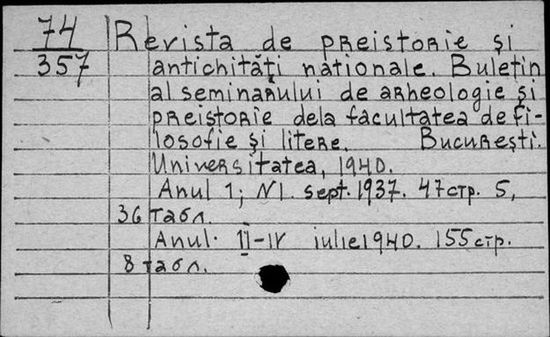 74
357
Revista de preistorie și
antichități naționale. Buletin
al seminarului de arheologie și
preistorie dela facultatea de fi-
losofie și litere. București.
Universitatea, 1940.
Anul 1; N1. sept. 1937. 47 стр. 5,
36 табл.
Anul. II-IV iulie 1940. 155 стр.
8 табл.